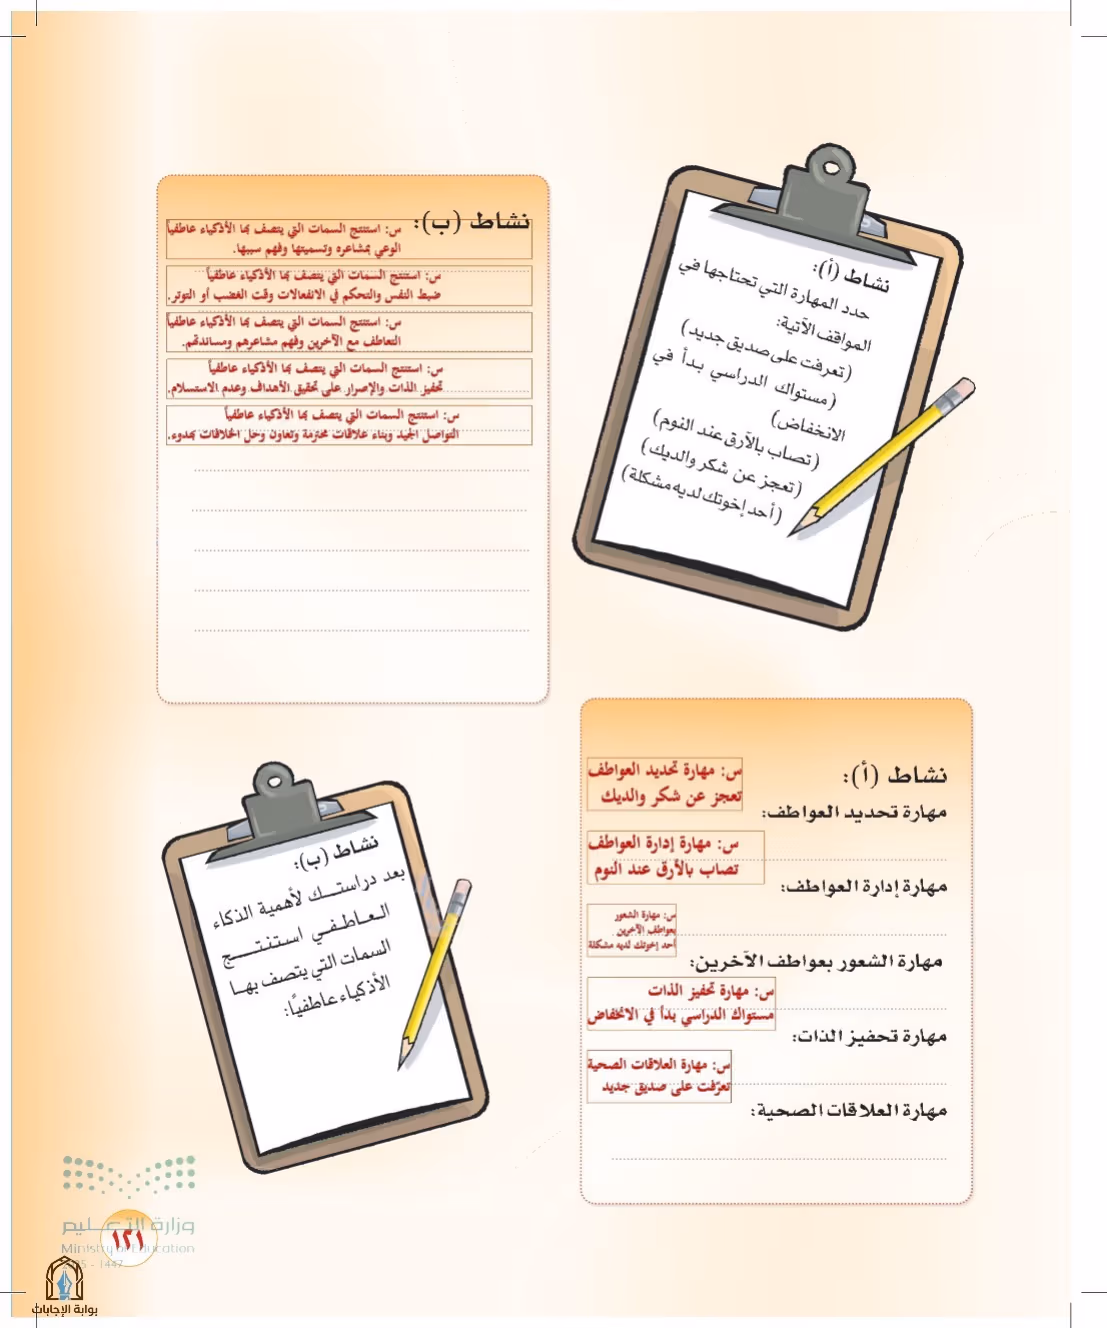 نشاط (أ):
حدد المهارة التي تحتاجها في
المواقف الآتية:
(تعرفت على صديق جديد)
(مستواك الدراسي بدأ في
الانخفاض)
(تصاب بالأرق عند النوم)
(تعجز عن شكر والديك)
(أحد إخوتك لديه مشكلة)
نشاط (ب):
س: استنتج السمات التي يتصف بها الأذكياء عاطفياً
الوعي بمشاعره وتسميتها وفهم سببها.
س: استنتج السمات التي يتصف بها الأذكياء عاطفياً
ضبط النفس والتحكم في الانفعالات وقت الغضب أو التوتر.
س: استنتج السمات التي يتصف بها الأذكياء عاطفياً
التعاطف مع الآخرين وفهم مشاعرهم ومساندتهم.
س: استنتج السمات التي يتصف بها الأذكياء عاطفياً
تحفيز الذات والإصرار على تحقيق الأهداف وعدم الاستسلام.
س: استنتج السمات التي يتصف بها الأذكياء عاطفياً
التواصل الجيد وبناء علاقات محترمة وتعاون وحل الخلافات بهدوء.
نشاط (أ):
س: مهارة تحديد العواطف
تعجز عن شكر والديك
مهارة تحديد العواطف:
س: مهارة إدارة العواطف
تصاب بالأرق عند النوم
مهارة إدارة العواطف:
س: مهارة الشعور
بعواطف الآخرين
أحد إخوتك لديه مشكلة
مهارة الشعور بعواطف الآخرين:
س: مهارة تحفيز الذات
مستواك الدراسي بدأ في الانخفاض
مهارة تحفيز الذات:
س: مهارة العلاقات الصحية
تعرّفت على صديق جديد
مهارة العلاقات الصحية:
نشاط (ب):
بعد دراستك لأهمية الذكاء
العاطفي استنتج
السمات التي يتصف بها
الأذكياء عاطفيًا:
وزارة التعليم
Ministry of Education
١٢١
- 1447
بوابة الإجابات